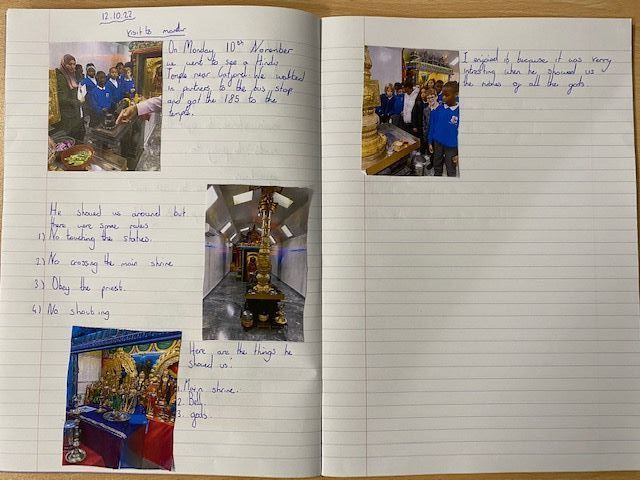 12.10.22
visit to mandir
On Monday 10th November
we went to see a Hindu
Temple near Catford. We walked
in partners to the bus stop
and got the 185 to the
temple.
He showed us around but
there were some rules
1) No touching the staties.
2) No crossing the main shrine
3) Obey the priest.
4) No shouting
Here are the things he
showed us:
1. Main shrine.
2. Bell
3. gods.
I enjoyed it because it was verry
intresting when he showed us
the of all the gods.